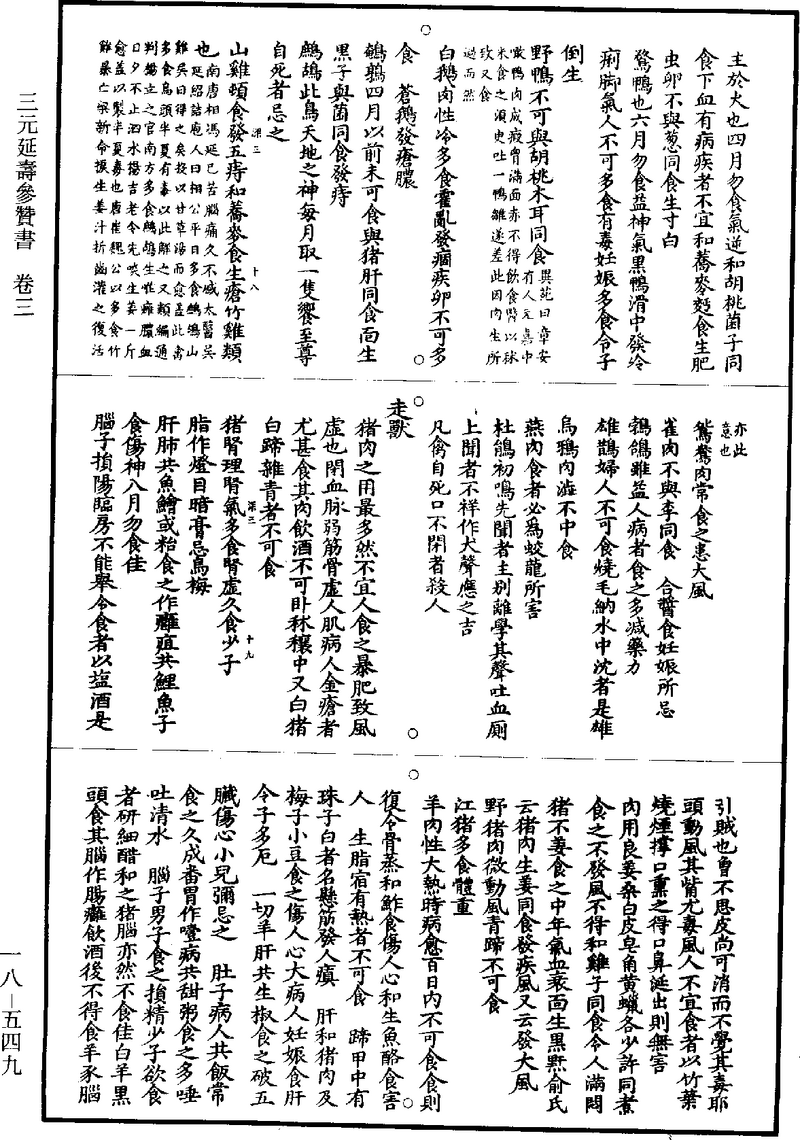 三元延壽參贊書　卷三
一八－五四九
主於火也四月勿食氣逆和胡桃菌子同
食下血有病疾者不宜和蕎麥麪食生肥
虫卵不與葱同食生寸白
鶩鴨也六月勿食益神氣黑鴨滑中發冷
痢脚氣人不可多食有毒妊娠多食令子
倒生
野鴨不可與胡桃木耳同食異苑曰章安有人元嘉中
噉鴨肉成瘕胷滿面赤不得飲食醫以秫
米食之須臾吐一鴨雛遂差此因肉生所
致又食
過而然
白鵝肉性冷多食霍亂發痼疾卵不可多
食　蒼鵝發瘡膿
鵪鶉四月以前未可食與猪肝同食面生
黑子與菌同食發痔
鷓鴣此鳥天地之神每月取一隻饗至尊
自死者忌之
深三　十八
山雞頓食發五痔和蕎麥食生瘡竹雞類
也南唐相馮延巳苦腦痛久不减太醫吳
延紹詰庖人曰相公平日多食鷓鴣山
雞吳曰得之矣投以甘草湯而愈蓋此禽
多食烏頭半夏有毒以此解之又類編通
判楊立之官南方多食鷓鴣生喉癰膿血
日夕不止泗水楊吉老令先啖生姜一斤
愈蓋以製半夏毒也唐崔魏公以多食竹
雞暴亡梁新命捩生姜汁折齒灌之復活
亦此
意也
鴛鴦肉常食之患大風
雀肉不與李同食　合醬食妊娠所忌
鵓鴿雖益人病者食之多减藥力
雄鵲婦人不可食燒毛納水中沈者是雄
烏鴉肉澁不中食
燕肉食者必爲蛟龍所害
杜鵑初鳴先聞者主别離學其聲吐血厠
上聞者不祥作犬聲應之吉
凡禽自死口不閉者殺人
走獸
猪肉之用最多然不宜人食之暴肥致風
虚也閉血脉弱筋骨虚人肌病人金瘡者
尤甚食其肉飲酒不可卧秫穰中又白猪
白蹄雜青者不可食
深三　十九
猪腎理腎氣多食腎虚久食少子
脂作燈目暗膏忌烏梅
肝肺共魚鱠或飴食之作癰疽共鯉魚子
食傷神八月勿食佳
腦子損陽臨房不能舉令食者以塩酒是
引賊也曾不思皮尚可消而不覺其毒耶
頭動風其觜尤毒風人不宜食者以竹葉
燒煙撑口熏之得口鼻涎出則無害
肉用良姜桑白皮皂角黄蠟各少許同煮
食之不發風不得和雞子同食令人滿悶
猪不姜食之中年氣血衰面生黑點俞氏
云猪肉生姜同食發疾風又云發大風
野猪肉微動風青蹄不可食
江猪多食體重
羊肉性大熱時病愈百日内不可食食則
復令骨蒸和鮓食傷人心和生魚酪食害
人　生脂宿有熱者不可食　蹄甲中有
珠子白者名懸筋發人瘨　肝和猪肉及
梅子小豆食之傷人心大病人妊娠食肝
令子多厄　一切羊肝共生椒食之破五
臟傷心小兒彌忌之　肚子病人共飯常
食之久成畨胃作噎病共甜粥食之多唾
吐清水　腦子男子食之損精少子欲食
者研細醋和之猪腦亦然不食佳白羊黑
頭食其腦作腸癰飲酒後不得食羊豕腦